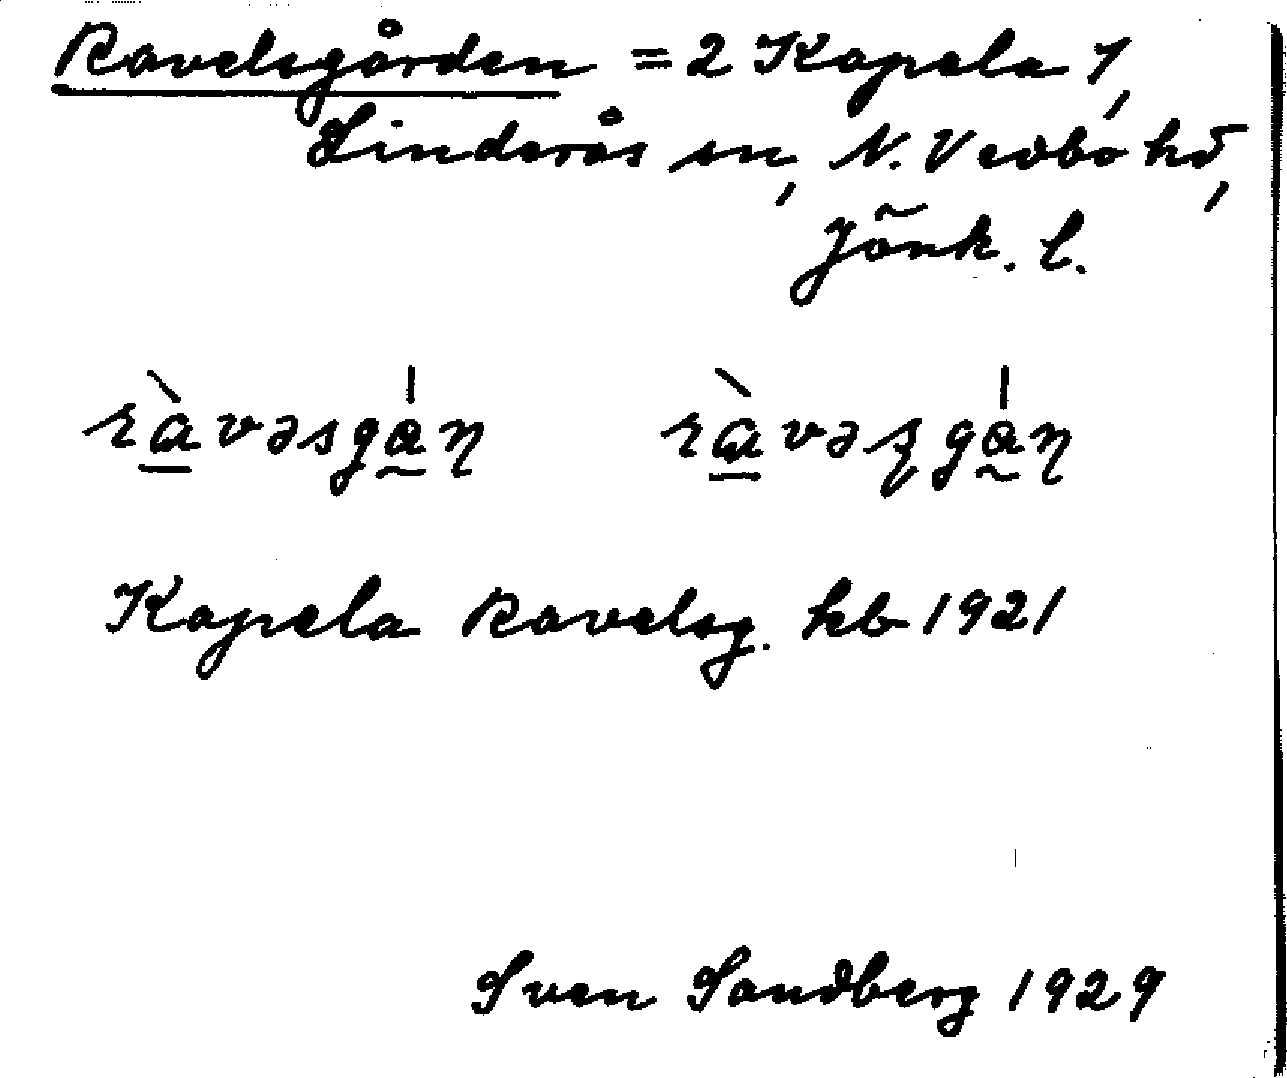 Ravelsgården = 2 Kapela 1,
Linderås sn, N. Vedbo hd,
Jönk. l.
ràvəsgån ràvəşgån
Kapela Ravelsg. kb 1921
Sven Sandberg 1929